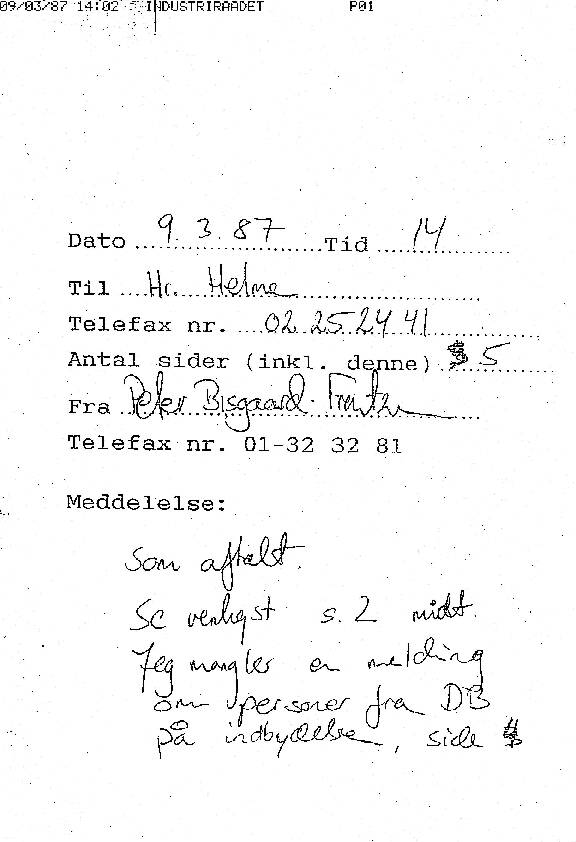 09/03/87 14:02 INDUSTRIRAADET P01
Dato 9. 3. 87 Tid 14
Til Hr. Helme
Telefax nr. 02 25 24 41
Antal sider (inkl. denne) 5
Fra Peter Bisgaard
Telefax nr. 01-32 32 81
Meddelelse:
Som aftalt.
Se venligst s. 2 midt.
Jeg mangler en melding
om personer fra DB
på indbydelse, side